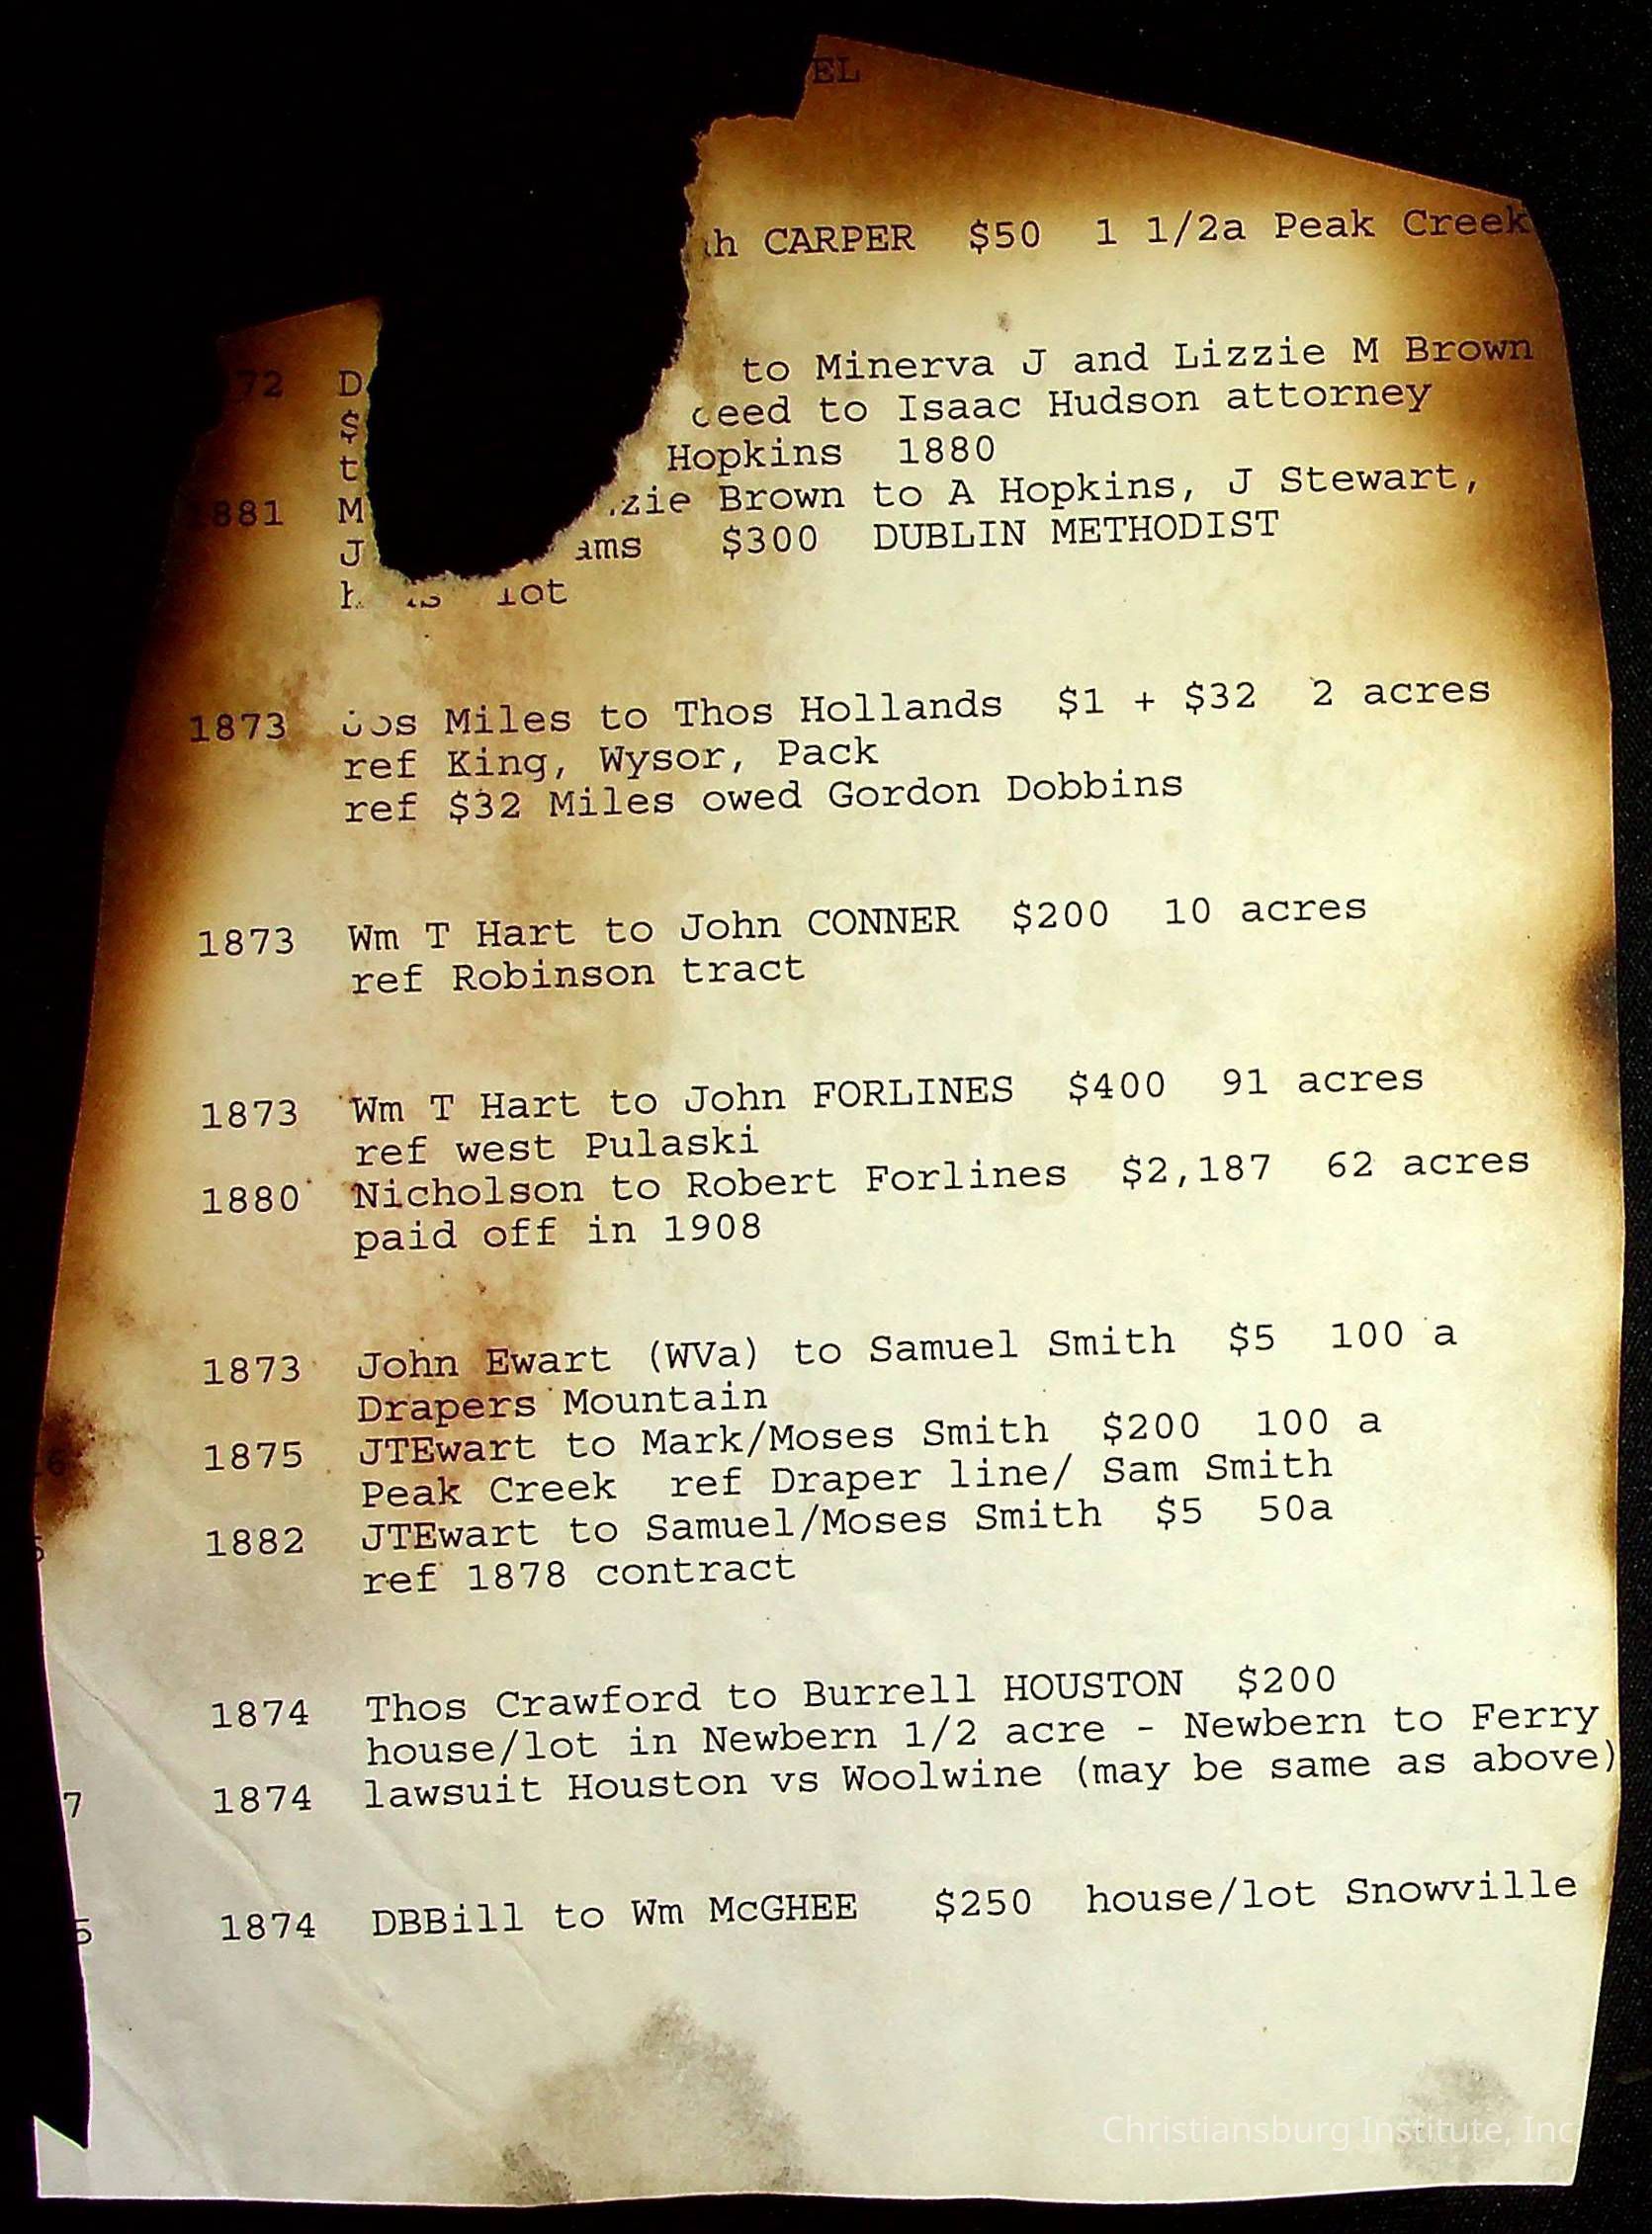 EL
CARPER $50 1 1/2a Peak Creek
72 D
to Minerva J and Lizzie M Brown
$
to Isaac Hudson attorney
t
Hopkins 1880
881 M
Brown to A Hopkins, J Stewart,
J
ams $300 DUBLIN METHODIST
lot
1873 Miles to Thos Hollands $1 + $32 2 acres
ref King, Wysor, Pack
ref $32 Miles owed Gordon Dobbins
1873 Wm T Hart to John CONNER $200 10 acres
ref Robinson tract
1873 Wm T Hart to John FORLINES $400 91 acres
ref west Pulaski
1880 Nicholson to Robert Forlines $2,187 62 acres
paid off in 1908
1873 John Ewart (WVa) to Samuel Smith $5 100 a
Drapers Mountain
6 1875 JTEwart to Mark/Moses Smith $200 100 a
Peak Creek ref Draper line/ Sam Smith
1882 JTEwart to Samuel/Moses Smith $5 50a
ref 1878 contract
1874 Thos Crawford to Burrell HOUSTON $200
house/lot in Newbern 1/2 acre - Newbern to Ferry
7 1874 lawsuit Houston vs Woolwine (may be same as above)
5 1874 DBBill to Wm McGHEE $250 house/lot Snowville
Christiansburg Institute, Inc